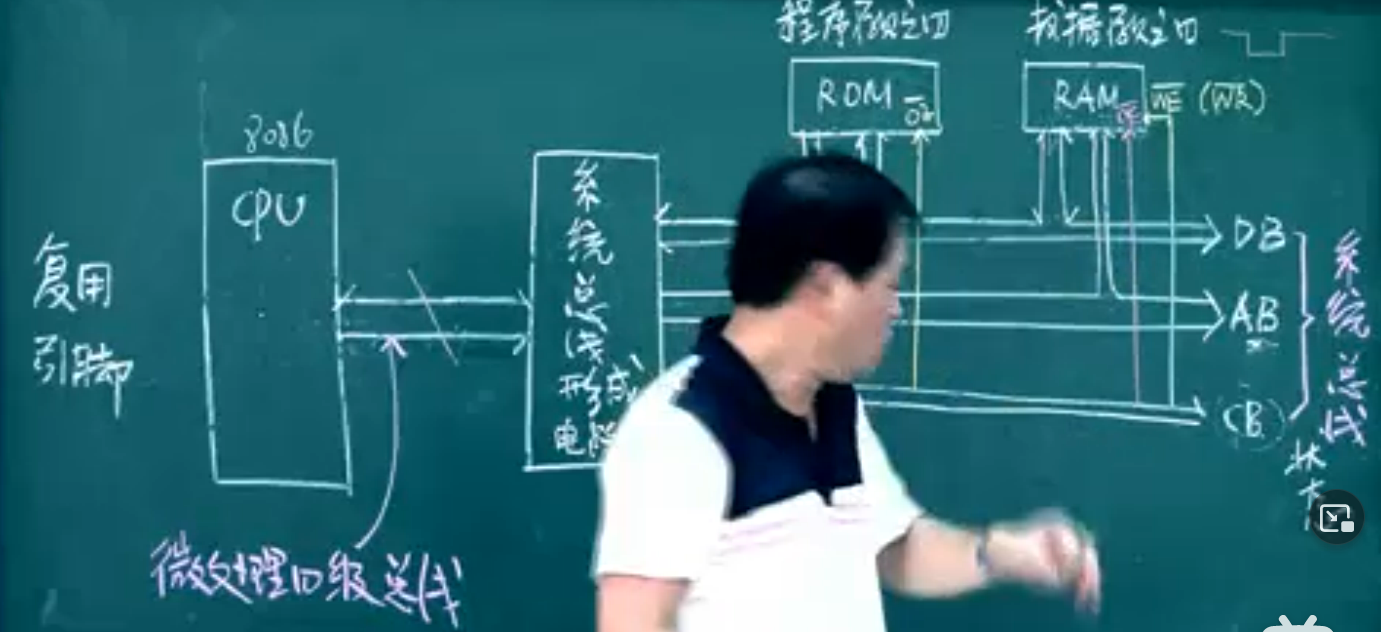 程序存贮器
数据存贮器
ROM
OE
RAM
OE
WE (WR)
8086
CPU
复用
引脚
系统总线形成电路
DB
AB
CB
系统总线
状态
微处理器级总线